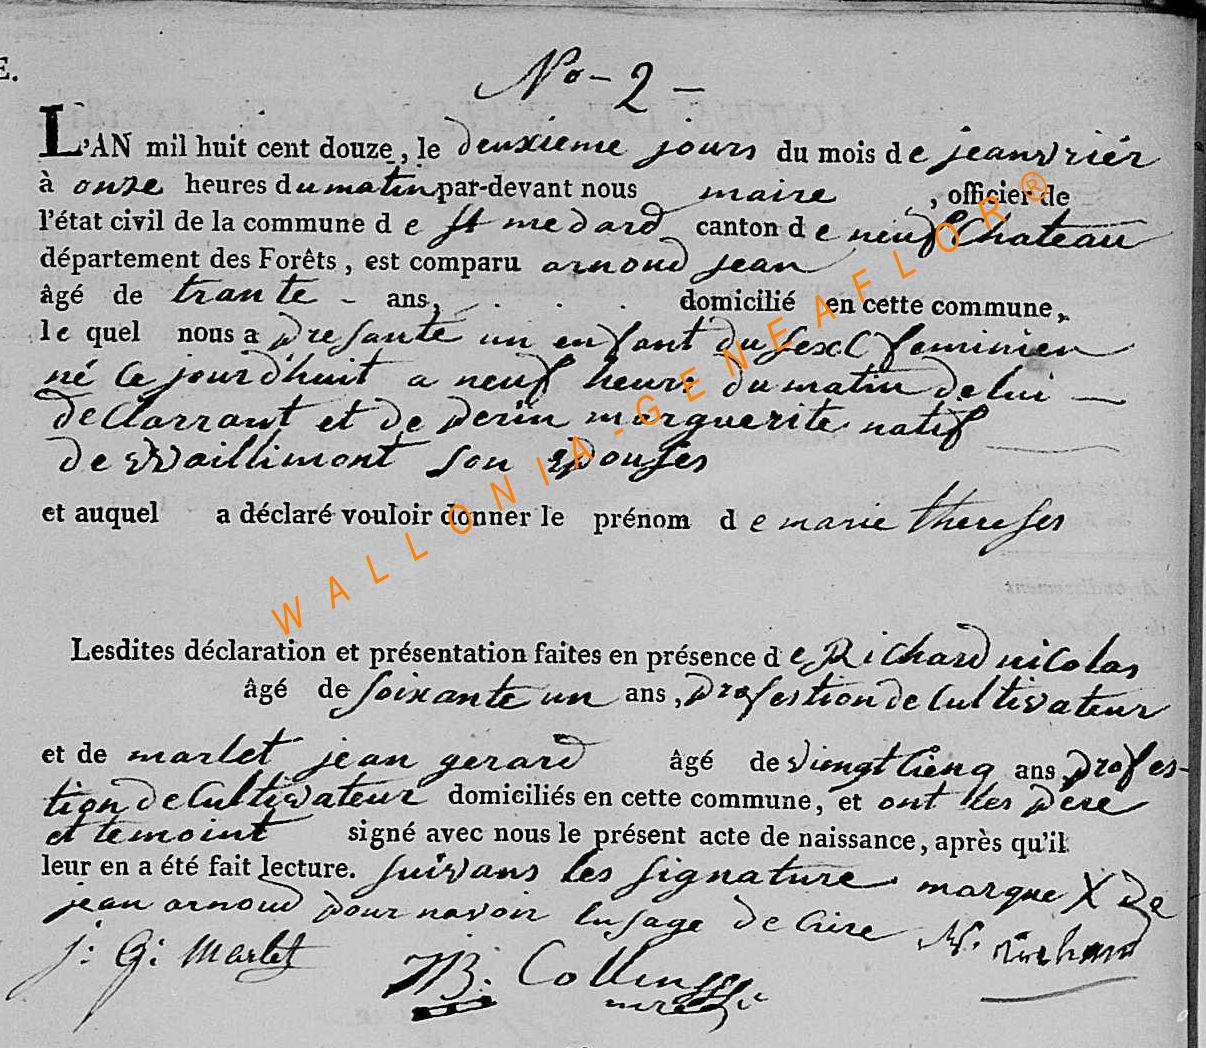 E.
No - 2 -
L'AN mil huit cent douze, le deuxieme jours du mois de jeanvriér
à onze heures du matin par-devant nous maire , officier de
l'état civil de la commune d e st medard canton d e neufchateau
département des Forêts, est comparu arnoud jean
âgé de trante - ans, . . . domicilié en cette commune,
le quel nous a presante un enfant du sexe feminien
né ce jourd'huit a neuf heure du matin de lui —
declarrant et de perin marguerite natif
de wvaillimont son epouses
et auquel a déclaré vouloir donner le prénom d e marie thereses
Lesdites déclaration et présentation faites en présence d e Richard nicolas
âgé de soixante un ans, profestion de cultivateur
et de marlet jean gerard âgé de viengt cienq ans profes-
tion de Cultivateur domiciliés en cette commune, et ont les pere
et temoint signé avec nous le présent acte de naissance, après qu'il
leur en a été fait lecture. suivans les signature marque X de
jean arnoud pour navoir lusage de Crire N. richard
j: G: Marlet JB. Collin
WALLONIA-GENEAFLOR®